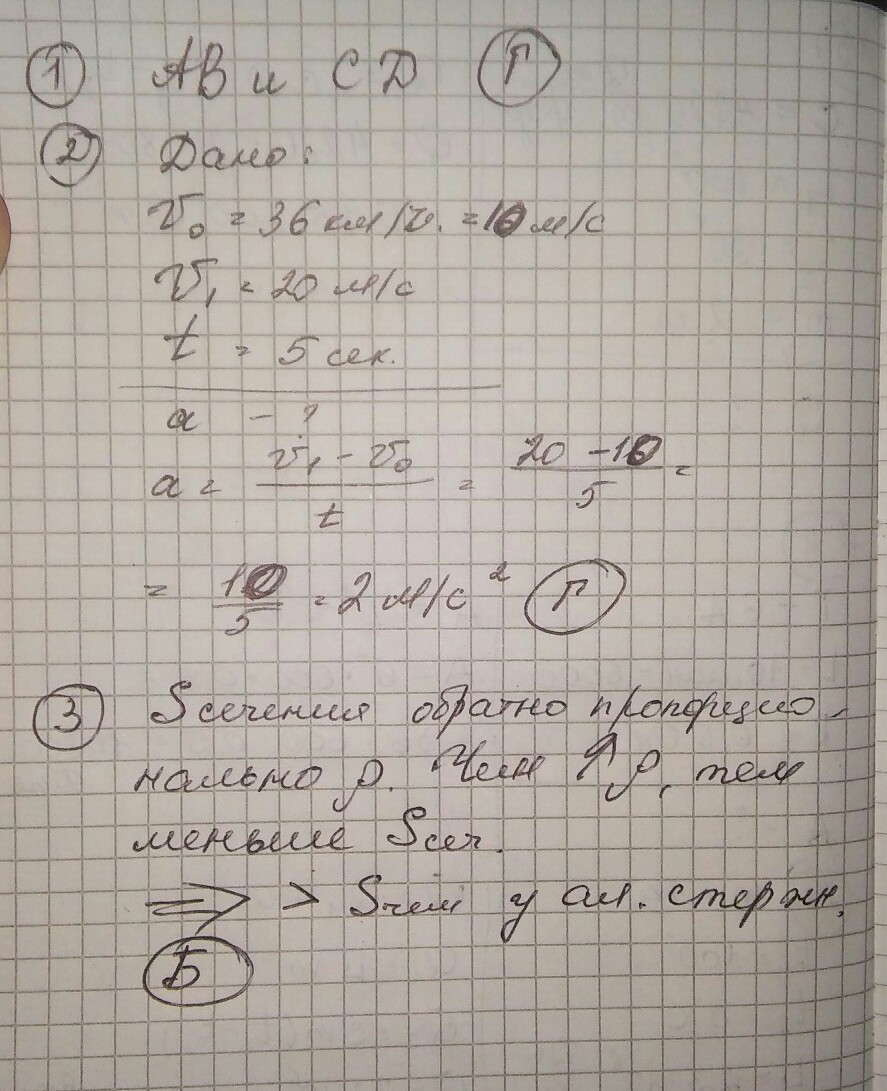 1 АВ и СD Г
2 Дано:
v₀ = 36 км/ч. = 10 м/с
v₁ = 20 м/с
t = 5 сек.
a - ?
a = (v₁ - v₀)/t = (20 - 10)/5 =
= 10/5 = 2 м/с² Г
3 Sсечения обратно пропорцио-
нально ρ. Чем ↑ρ, тем
меньше Sсеч.
=> > Sчем у ал. стержн.
Б